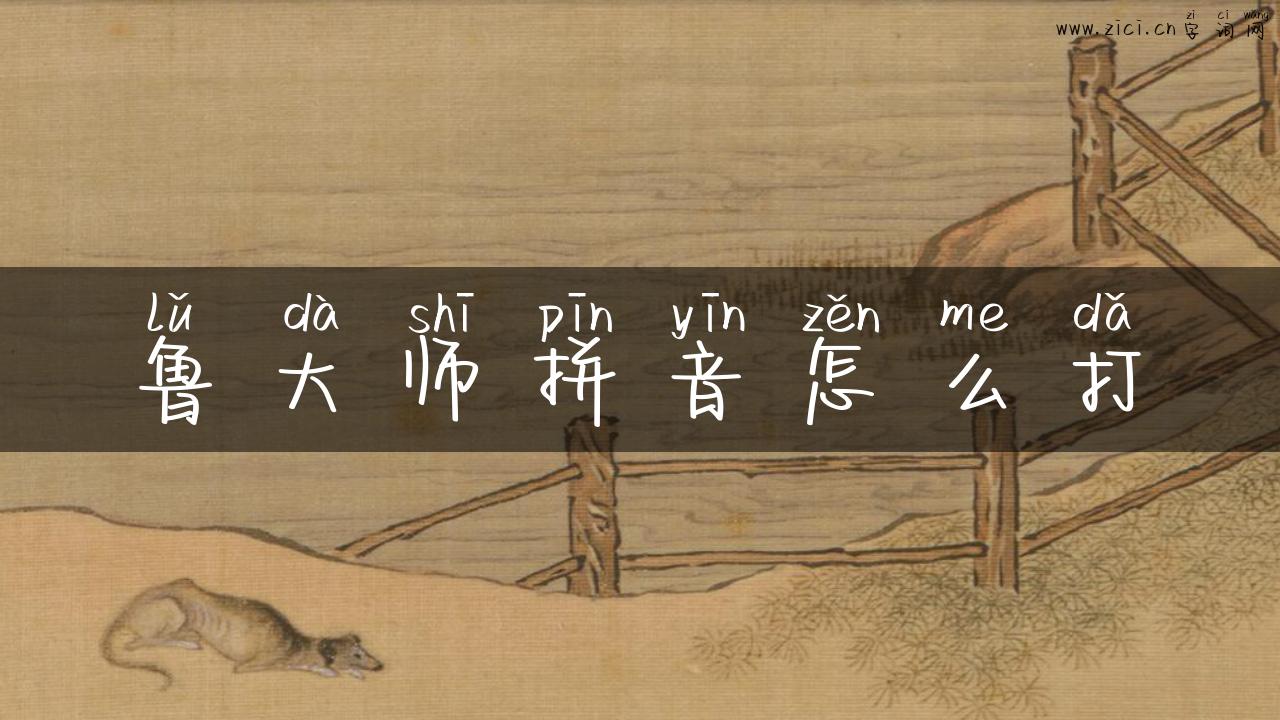 zì cí wǎng
www.zici.cn 字词网
lǔ dà shī pīn yīn zěn me dǎ
鲁大师拼音怎么打